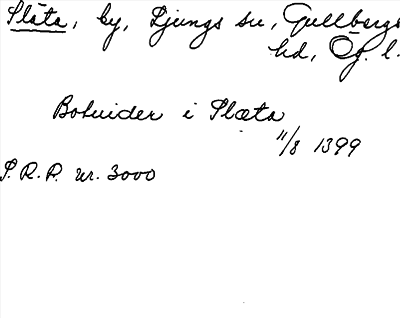 Släta, by, Ljungs sn, Gullbergs
hd, Ög. l.
Botuider i Slæta
11/8 1399
S.R.P. nr. 3000